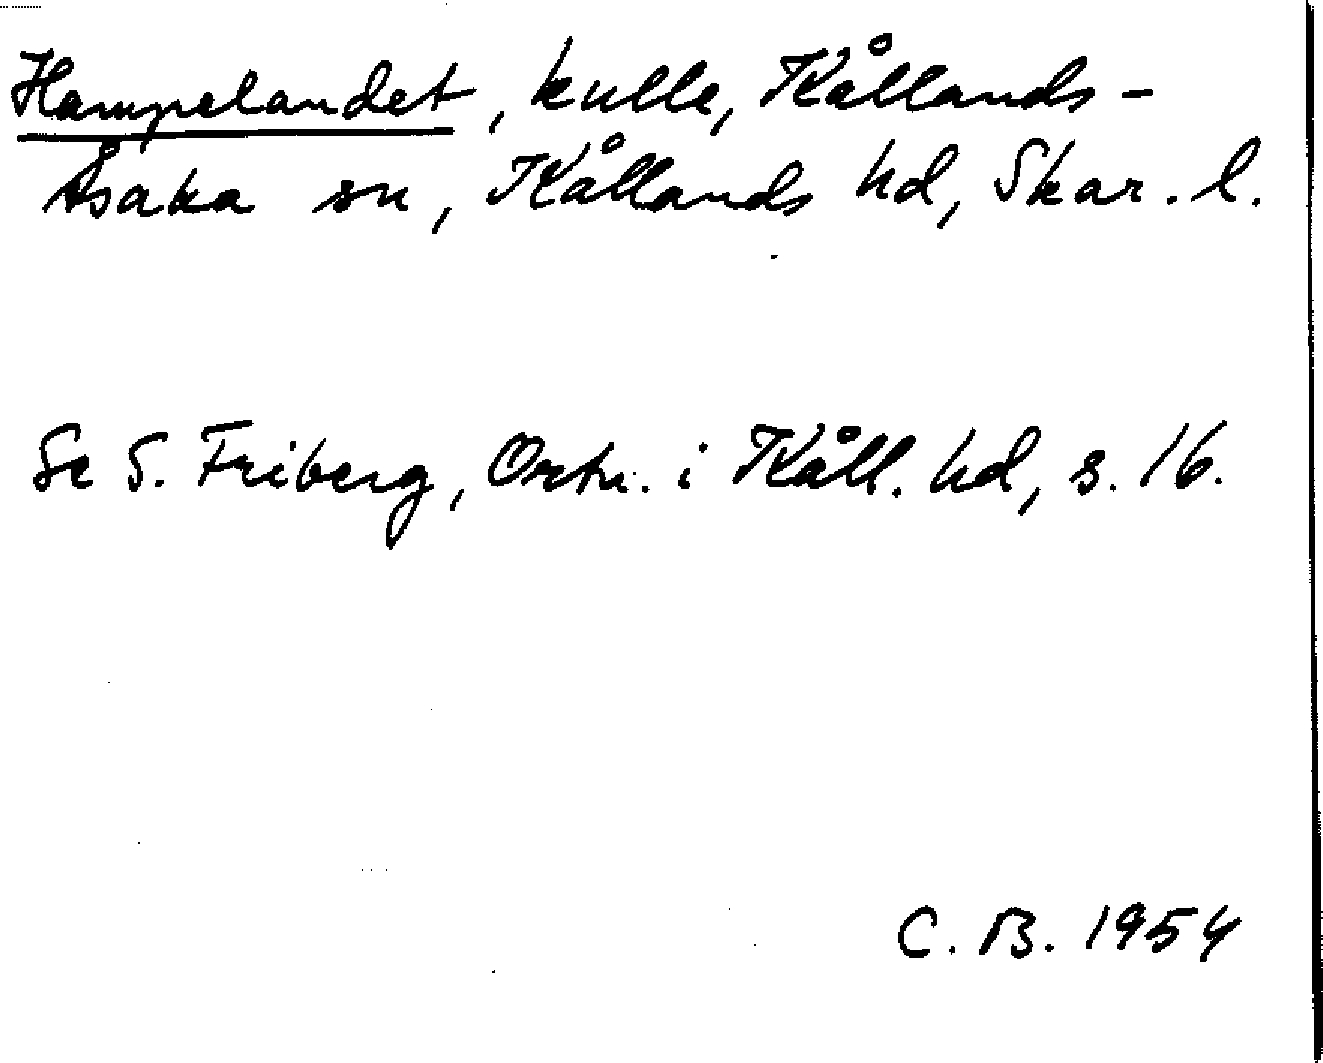 Hampelandet, kulle, Kållands-
Åsaka sn, Kållands hd, Skar. l.
Se S. Friberg, Ortn. i Kåll. hd, s. 16.
C. B. 1954